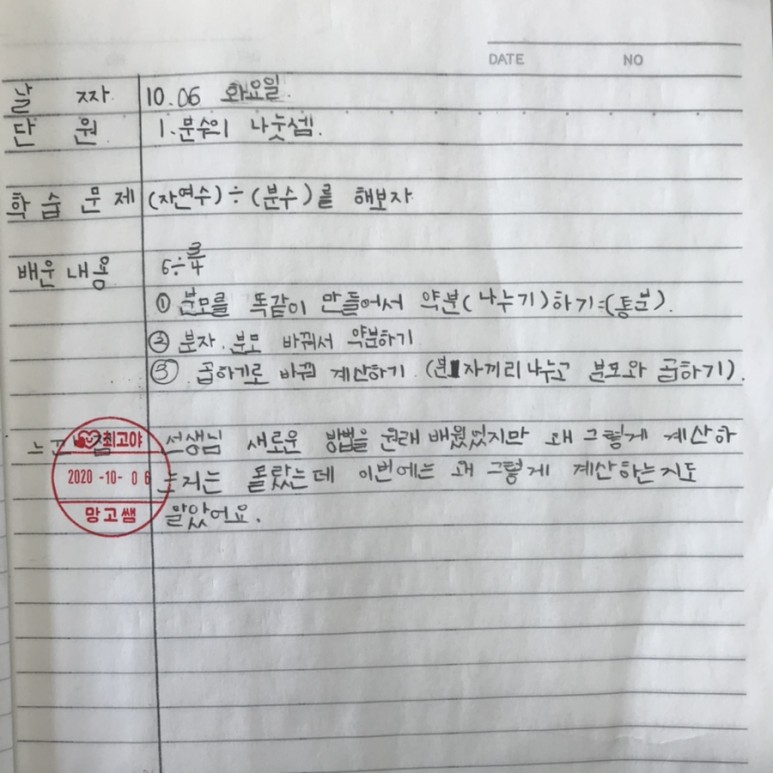 DATE NO
날 짜 10.06 화요일.
단 원 1. 분수의 나눗셈.
학습 문제 (자연수)÷(분수)를 해보자
배운 내용 6÷3/4
① 분모를 똑같이 만들어서 약분(나누기)하기=(통분).
② 분자. 분모 바꿔서 약분하기
③ 곱하기로 바꿔 계산하기 (분자끼리 나누고 분모와 곱하기).
최고야
2020-10-06
망고쌤
선생님 새로운 방법을 원래 배웠었지만 왜 그렇게 계산하
는지는 몰랐는데 이번에는 왜 그렇게 계산하는지도
알았어요.